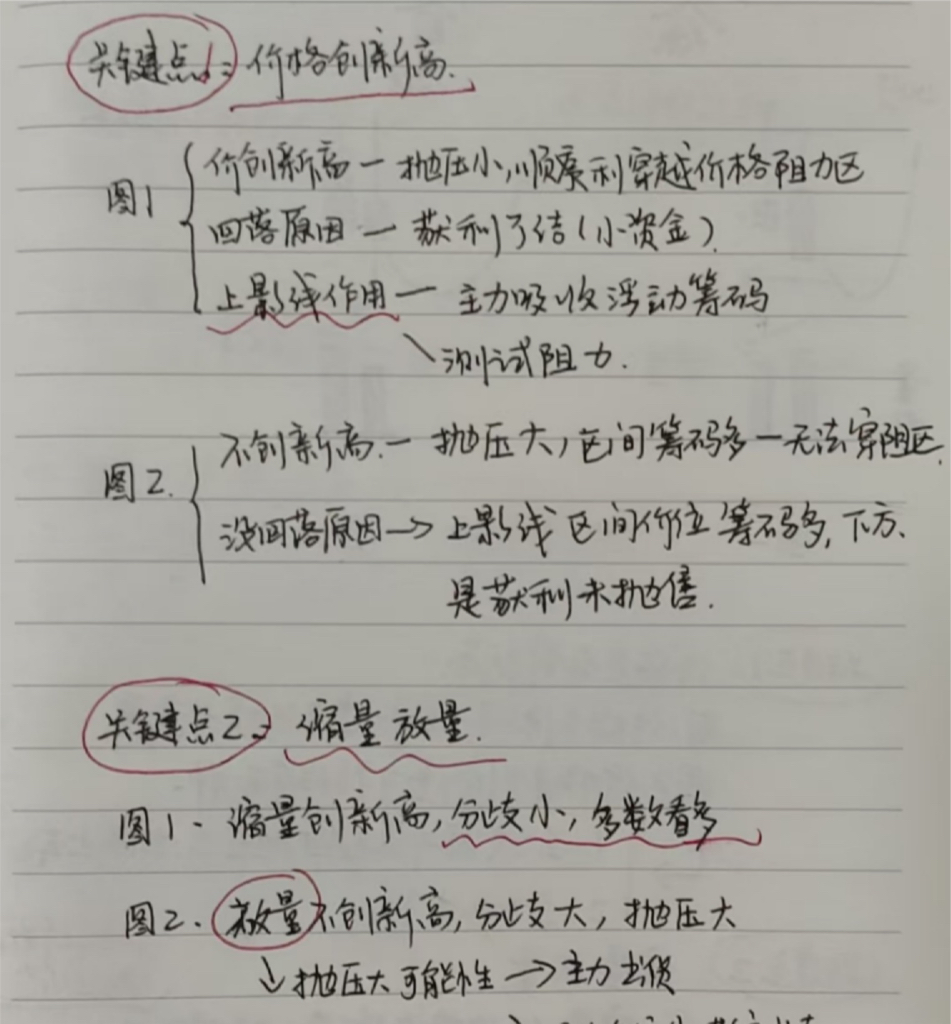 关键点1: 价格创新高.
图1 价创新高 — 抛压小,顺利穿越价格阻力区
回落原因 — 获利了结(小资金).
上影线作用 — 主力吸收浮动筹码
测试阻力.
图2. 不创新高. — 抛压大,区间筹码多 — 无法穿阻区.
没回落原因 → 上影线区间价位筹码多,下方.
是获利未抛售.
关键点2: 缩量放量.
图1. 缩量创新高,分歧小,多数看多
图2. 放量不创新高,分歧大,抛压大
↓抛压大可能性 → 主力出货